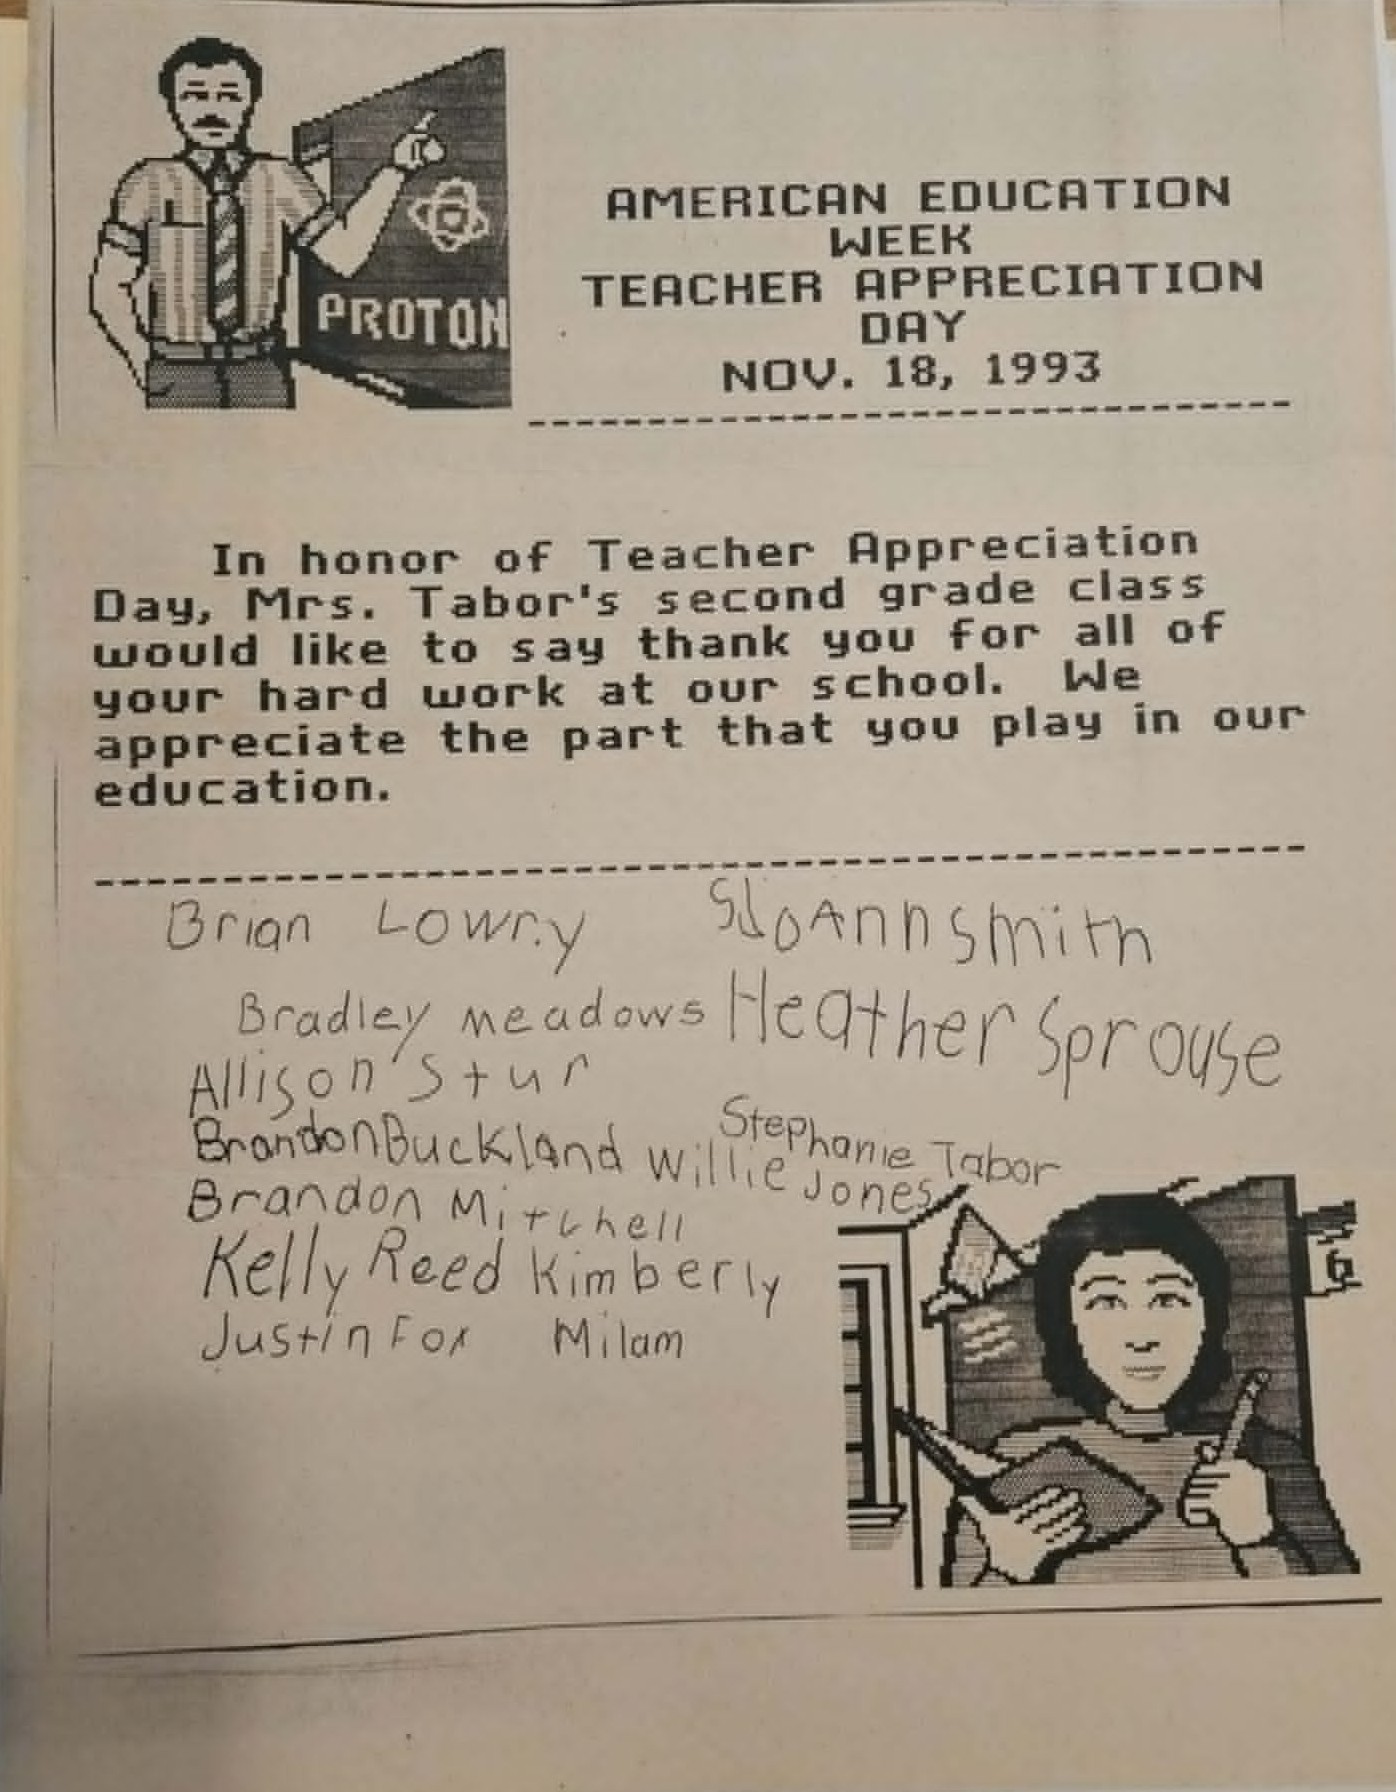 PROTON
AMERICAN EDUCATION
WEEK
TEACHER APPRECIATION
DAY
NOV. 18, 1993
In honor of Teacher Appreciation
Day, Mrs. Tabor's second grade class
would like to say thank you for all of
your hard work at our school. We
appreciate the part that you play in our
education.
Brian Lowry
JoAnn Smith
Bradley meadows
Heather Sprouse
Allison Stur
Stephanie Tabor
Brandon Buckland
Willie Jones
Brandon Mitchell
Kelly Reed
Kimberly
Justin Fox
Milam